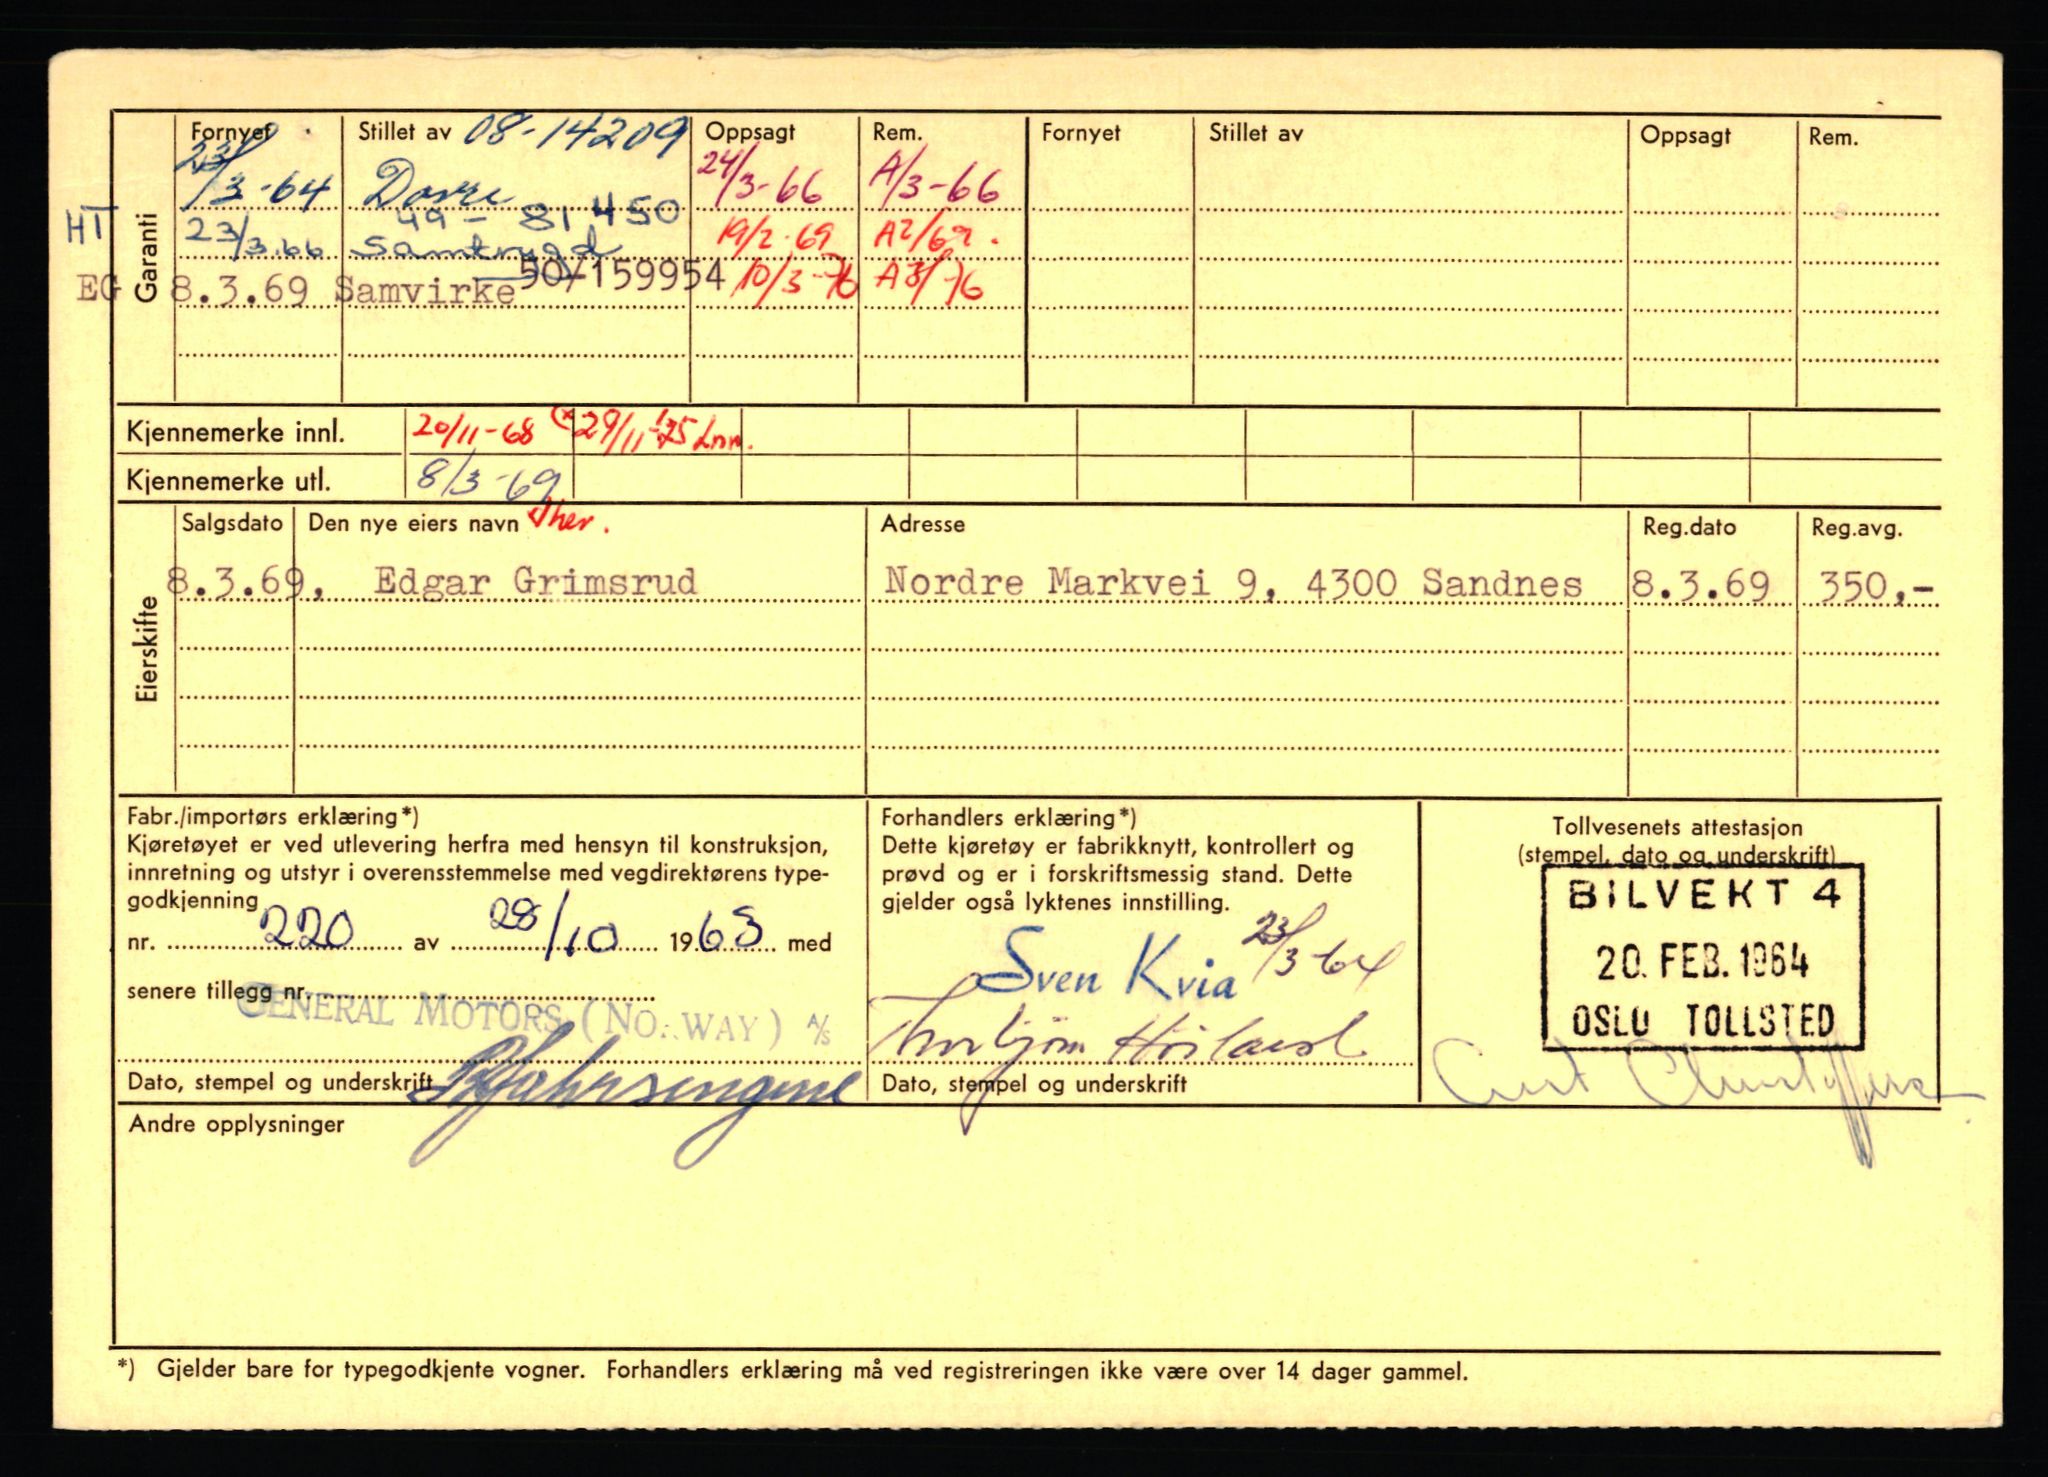 Fornyet Stillet av 08-14209 Oppsagt Rem. Fornyet Stillet av Oppsagt Rem.
23/3-64 Dovre 24/3-66 A/3-66
HT 23/3.66 49-81450 Samtrygd 19/2-69 A2/69.
EG 8.3.69 Samvirke 50/159954 10/3-76 A3/76
Garanti
Kjennemerke innl. 20/11-68 (x 29/11-75 Lnn.
Kjennemerke utl. 8/3-69
Salgsdato Den nye eiers navn Adresse Reg.dato Reg.avg.
8.3.69, Edgar Grimsrud Nordre Markvei 9, 4300 Sandnes 8.3.69 350,-
Eierskifte
Fabr./importørs erklæring*)
Kjøretøyet er ved utlevering herfra med hensyn til konstruksjon,
innretning og utstyr i overensstemmelse med vegdirektørens type-
godkjenning
nr. 220 av 28/10 1963 med
senere tillegg nr.
GENERAL MOTORS (NORWAY) A/S
Dato, stempel og underskrift
Forhandlers erklæring*)
Dette kjøretøy er fabrikknytt, kontrollert og
prøvd og er i forskriftsmessig stand. Dette
gjelder også lyktenes innstilling.
23/3-64
Sven Kvia
Thorbjørn Høiland
Dato, stempel og underskrift
Tollvesenets attestasjon
(stempel, dato og underskrift)
BILVEKT 4
20. FEB. 1964
OSLO TOLLSTED
Andre opplysninger
*) Gjelder bare for typegodkjente vogner. Forhandlers erklæring må ved registreringen ikke være over 14 dager gammel.